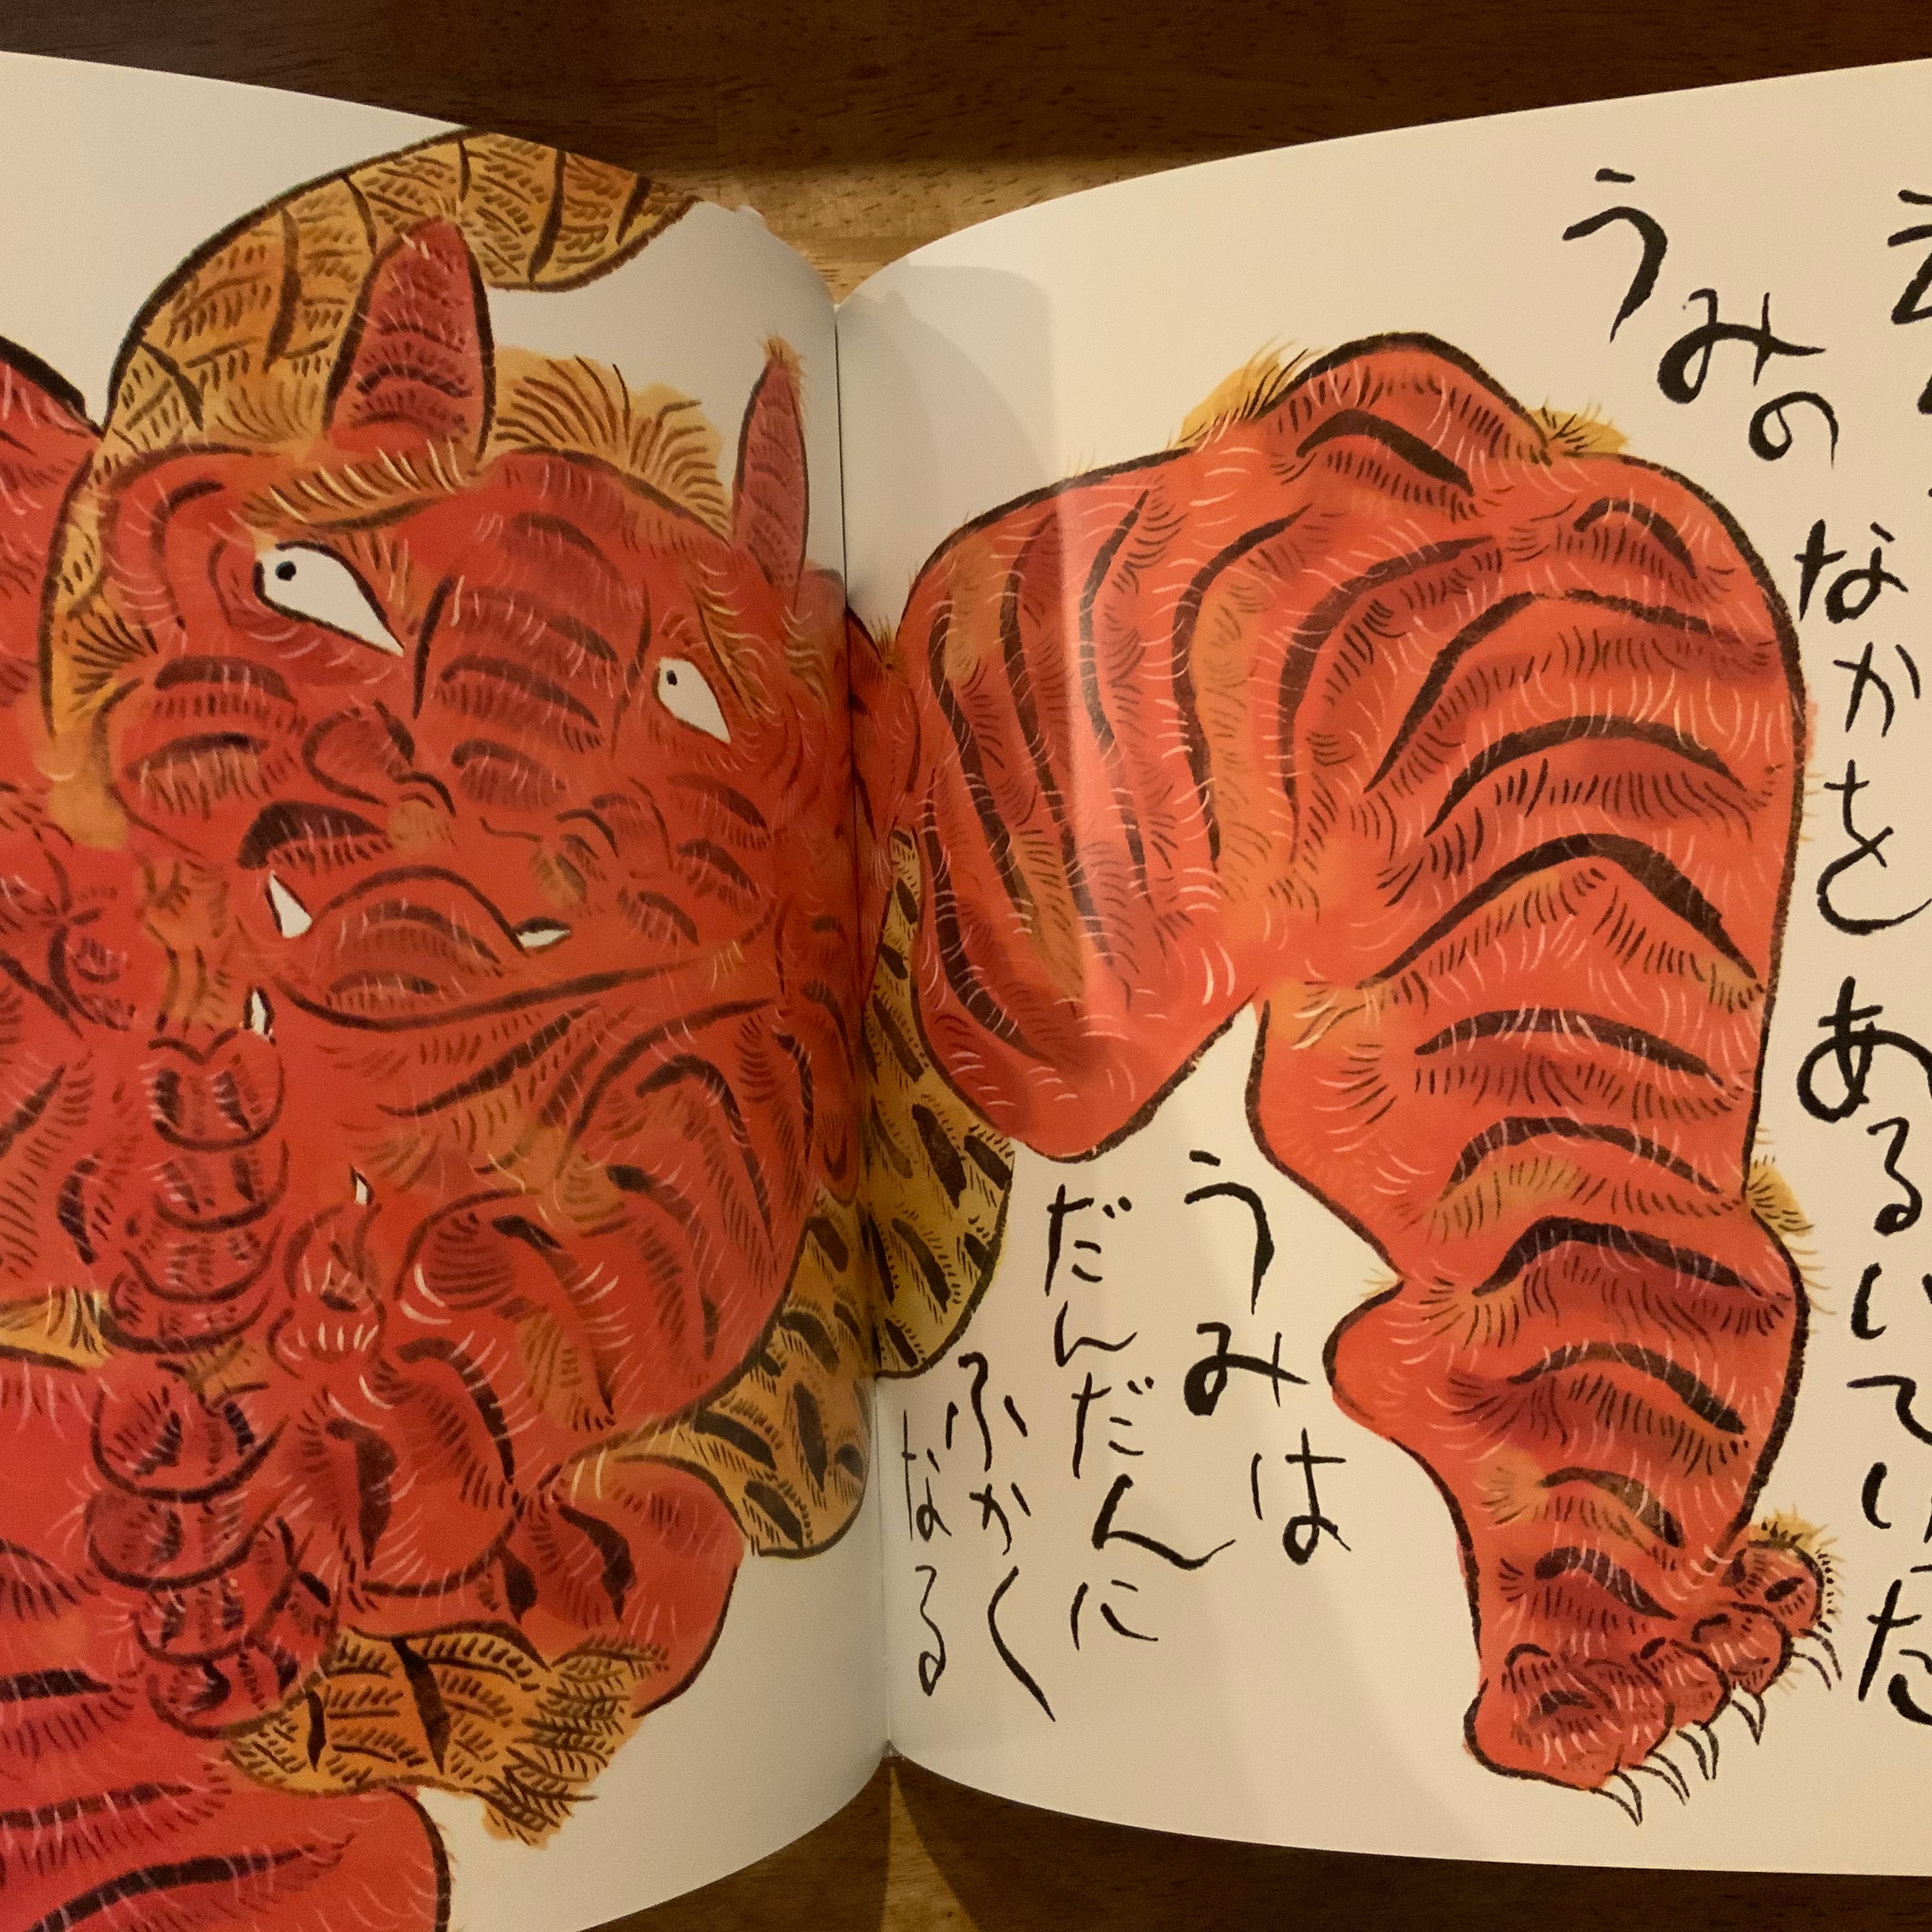 うみの なかを あるいていた
うみは
だんだんに
ふかく
なる